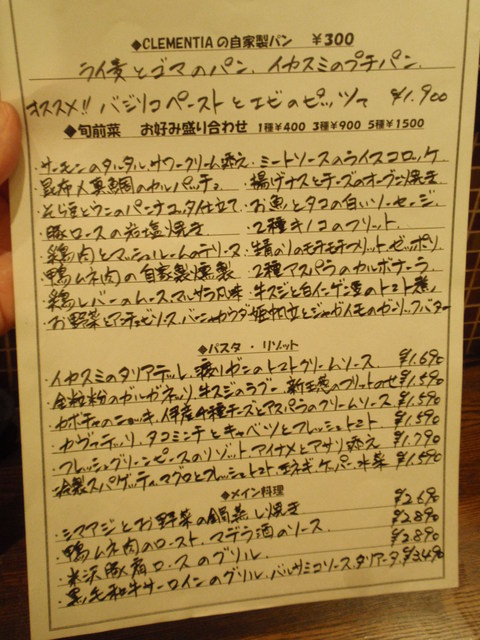 ◆CLEMENTIAの自家製パン ¥300
ライ麦とゴマのパン、イカスミのプチパン
オススメ!! バジリコペーストとエビのピッツァ ¥1,900
◆旬前菜 お好み盛り合わせ 1種¥400 3種¥900 5種¥1500
・サーモンのタルタル、サワークリーム添え・ミートソースのライスコロッケ
・昆布〆真鯛のカルパッチョ ・揚げナスとチーズのオーブン焼き
・そら豆とウニのパンナコッタ仕立て・お魚とタコの白いソーセージ
・豚ロースの岩塩焼き ・2種キノコのフリット
・鶏肉とマッシュルームのテリーヌ・生青のりのモチモチフリット、ゼッポリ
・鴨ムネ肉の自家製燻製 ・2種アスパラのカルボナーラ
・鶏レバーのムース、マルサラ風味・牛スジと白インゲン豆のトマト煮
・お野菜とアンチョビソース、バーニャカウダ・姫帆立とジャガイモのガーリックバター
◆パスタ・リゾット
・イカスミのタリアテッレ、渡りガニのトマトクリームソース ¥1,690
・全粒粉のガルガネッリ、牛スジのラグー、新玉葱のフリットのせ ¥1,590
・カボチャのニョッキ、伊産4種チーズとアスパラのクリームソース ¥1,590
・カヴァテッリ、タコミンチとキャベツとフレッシュトマト ¥1,590
・フレッシュグリーンピースのリゾット、アイナメとアサリ添え ¥1,790
・冷製スパゲッティ、マグロとフレッシュトマト、玉ネギ、ケーパー、水菜 ¥1,590
◆メイン料理
・シマアジとお野菜の鍋蒸し焼き ¥2,690
・鴨ムネ肉のロースト、マデラ酒のソース ¥2,890
・米沢豚肩ロースのグリル ¥2,890
・黒毛和牛サーロインのグリル、バルサミコソース、タリアータ ¥3,490